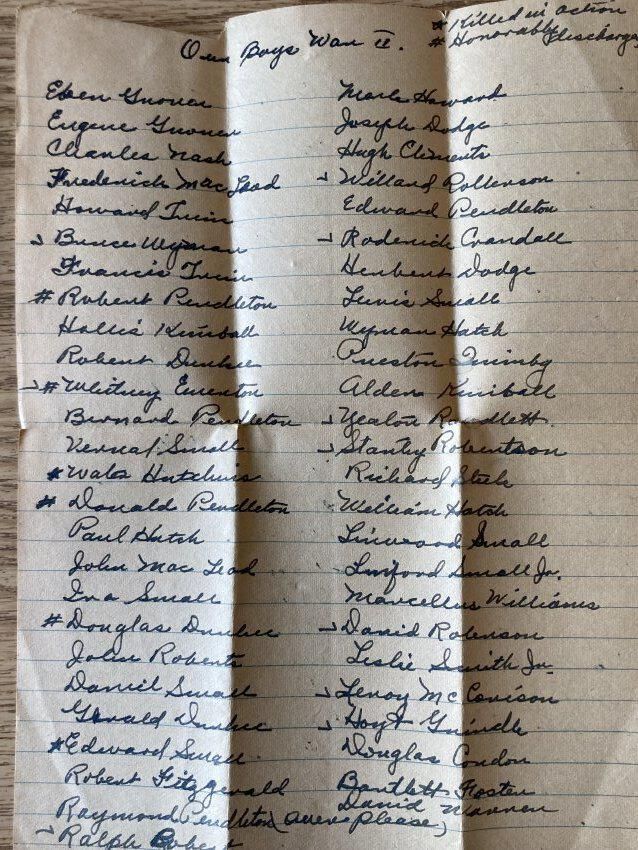 * Killed in action
Our Boys War II.
# Honorably Discharged
Eben Grover
Eugene Grover
Charles Nash
Frederick Mac Leod
Howard
Bruce Wyman
Francis
# Robert Pendleton
Hollis Kimball
Robert Dunbar
# Whitney Emerton
Bernard Pendleton
Vernal Small
* Wales Hutchins
# Donald Pendleton
Paul Hatch
John Mac Leod
Ira Small
# Douglas Dunbar
John Roberts
Daniel Small
Gerald Dunbar
* Edward Small
Robert Fitzgerald
Raymond Pendleton (over please)
Ralph
Mark Howard
Joseph Dodge
Hugh Clements
Willard Rollerson
Edward Pendleton
Roderick Crandall
Herbert Dodge
Small
Wyman Hatch
Preston Quimby
Alden Kimball
Randlett.
Stanley Robertson
Richard
William Hatch
Linwood Small
Linford Small Jr.
Marcellus Williams
David Roberson
Leslie Smith Jr.
Leroy Mc Corison
Hoyt Grindle
Douglas Condon
Bartlett Foster
David Warren